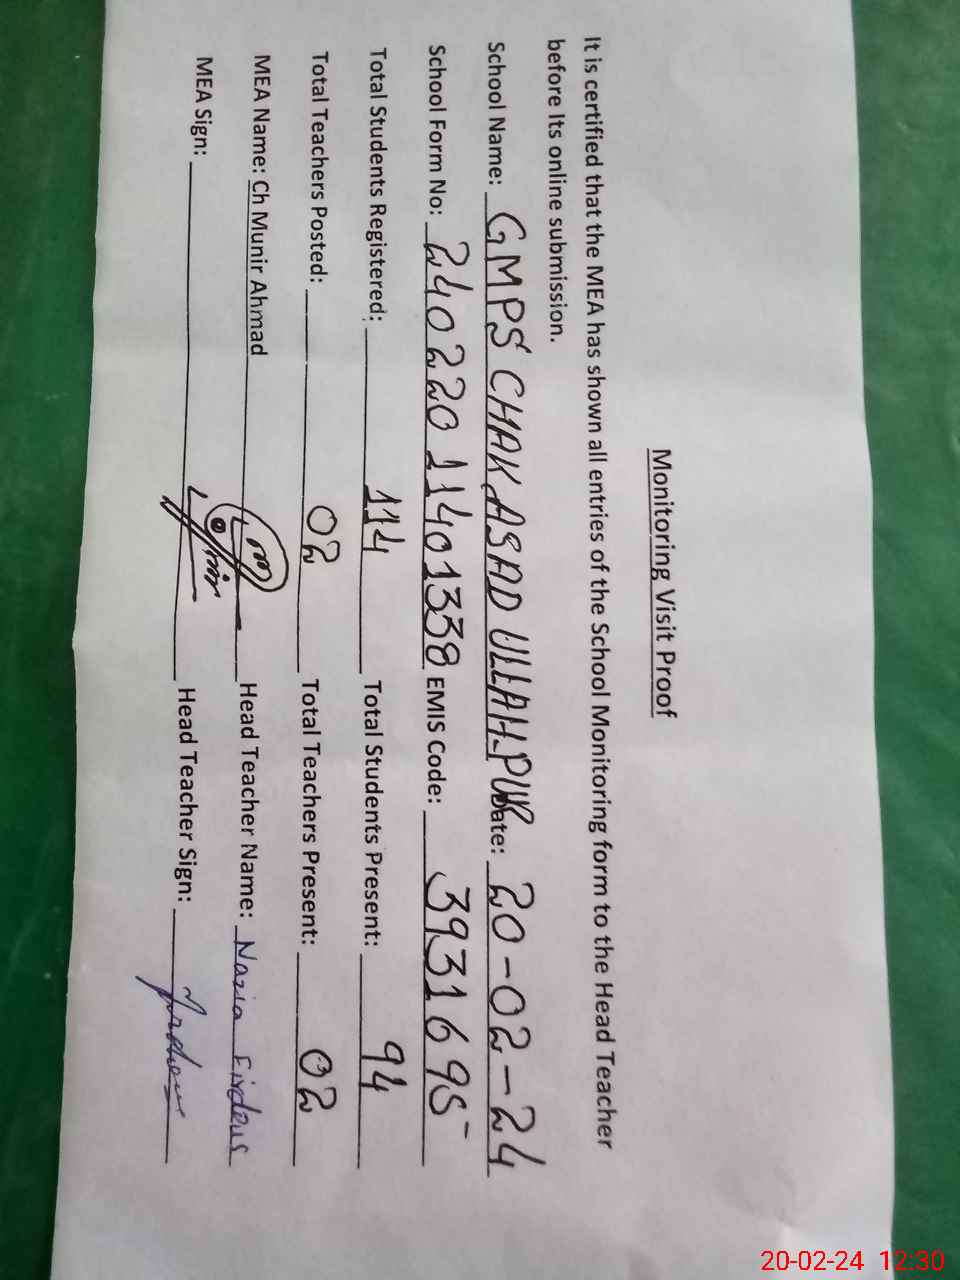 Monitoring Visit Proof
It is certified that the MEA has shown all entries of the School Monitoring form to the Head Teacher
before Its online submission.
School Name: GMPS CHAK ASAD ULLAH PUR Date: 20-02-24
School Form No: 240220114013​38 EMIS Code: 39316 95
Total Students Registered: 114 Total Students Present: 94
Total Teachers Posted: 02 Total Teachers Present: 02
MEA Name: Ch Munir Ahmad Head Teacher Name: Nazia Firdous
MEA Sign: Head Teacher Sign:
20-02-24 12:30